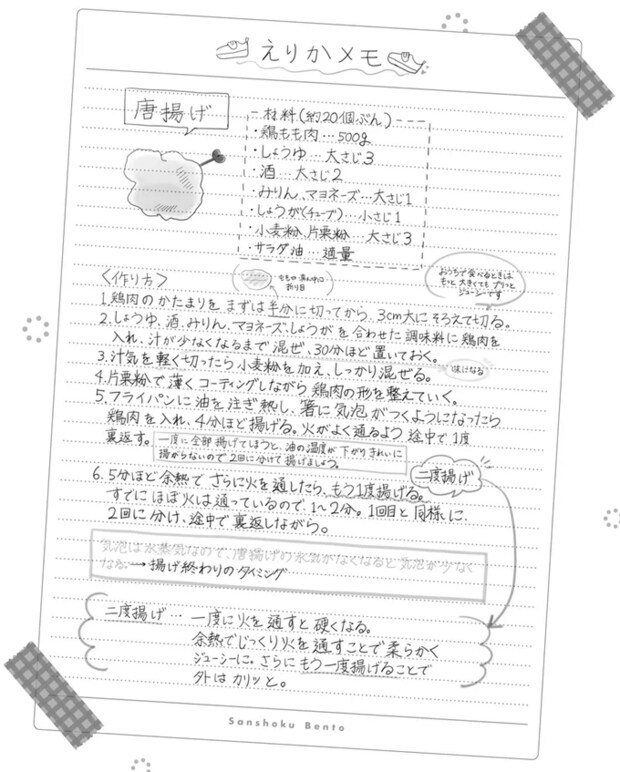 えりかメモ
唐揚げ
- 材料(約20個ぶん) - - -
・鶏もも肉…500g
・しょうゆ…大さじ3
・酒…大さじ2
・みりん、マヨネーズ…大さじ1
・しょうが(チューブ)…小さじ1
・小麦粉、片栗粉…大さじ3
・サラダ油…適量
〈作り方〉
折り目
おうちで食べるときは
もっと大きくても プリッと
ジューシーです
1.鶏肉のかたまりを まずは半分に切ってから、3cm大にそろえて切る。
2.しょうゆ、酒、みりん、マヨネーズ、しょうがを合わせた調味料に鶏肉を
入れ、汁が少なくなるまで混ぜ、30分ほど置いておく。
3.汁気を軽く切ったら小麦粉を加え、しっかり混ぜる。
味になる
4.片栗粉で薄くコーティングしながら鶏肉の形を整えていく。
5.フライパンに油を注ぎ熱し、箸に気泡がつくようになったら
鶏肉を入れ、4分ほど揚げる。火がよく通るよう途中で1度
裏返す。
一度に全部揚げてしまうと、油の温度が下がりきれいに
揚がらないので2回に分けて揚げましょう。
6.5分ほど余熱でさらに火を通したら、もう1度揚げる。
二度揚げ
すでにほぼ火は通っているので、1〜2分。1回目と同様に、
2回に分け、途中で裏返しながら。
気泡は水蒸気なので、唐揚げの水気がなくなると気泡が少なく
なる→揚げ終わりのタイミング
二度揚げ… 一度に火を通すと硬くなる。
余熱でじっくり火を通すことで柔らかく
ジューシーに。さらにもう一度揚げることで
外はカリッと。
Sanshoku Bento